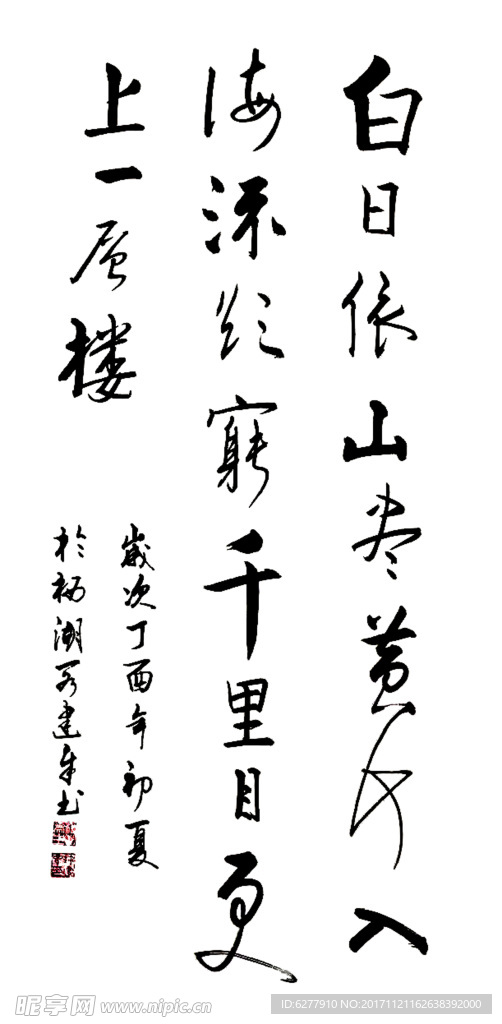 白日依山尽黄河入
海流欲穷千里目更
上一层楼
歲次丁酉年初夏
建年书
昵享网 www.nipic.cn
ID:6277910 NO:20171121162638392000